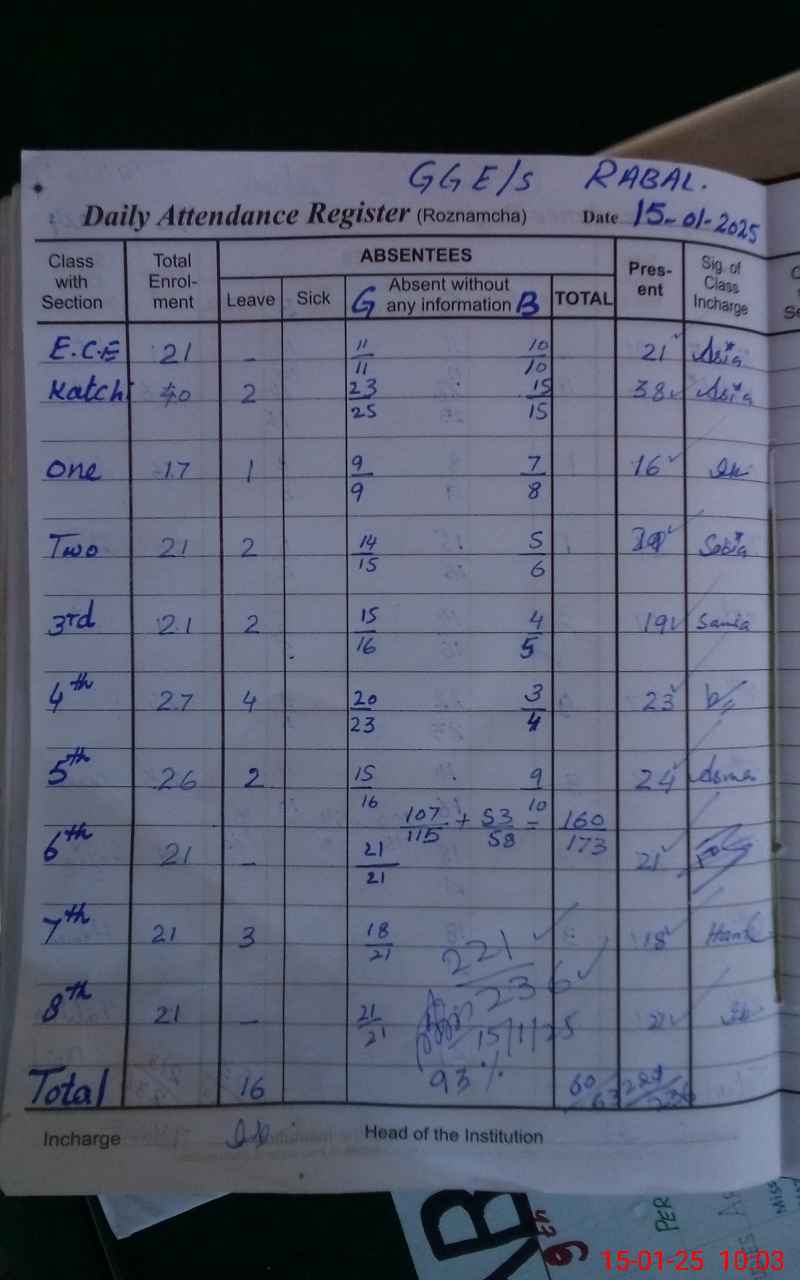 GGE/s RABAL.
Daily Attendance Register (Roznamcha) Date 15-01-2025
Class with Section Total Enrol-ment ABSENTEES Pres-ent Sig. of Class Incharge
Leave Sick G Absent without any information B TOTAL
E.C.E 21 – 11/11 10/10 21 Asia
Katchi 40 2 23/25 15/15 38 Asia
One 17 1 9/9 7/8 16
Two 21 2 14/15 5/6 19 Sobia
3rd 21 2 15/16 4/5 19 Sania
4th 27 4 20/23 3/4 23
5th 26 2 15/16 9/10 24 Asma
107/115 + 53/58 = 160/173
6th 21 – 21/21 21
7th 21 3 18/21 18
221/236
8th 21 – 21/21 21
15/1/25
93%
Total 16 60/63 221/236
Incharge Head of the Institution
PER
15-01-25 10:03